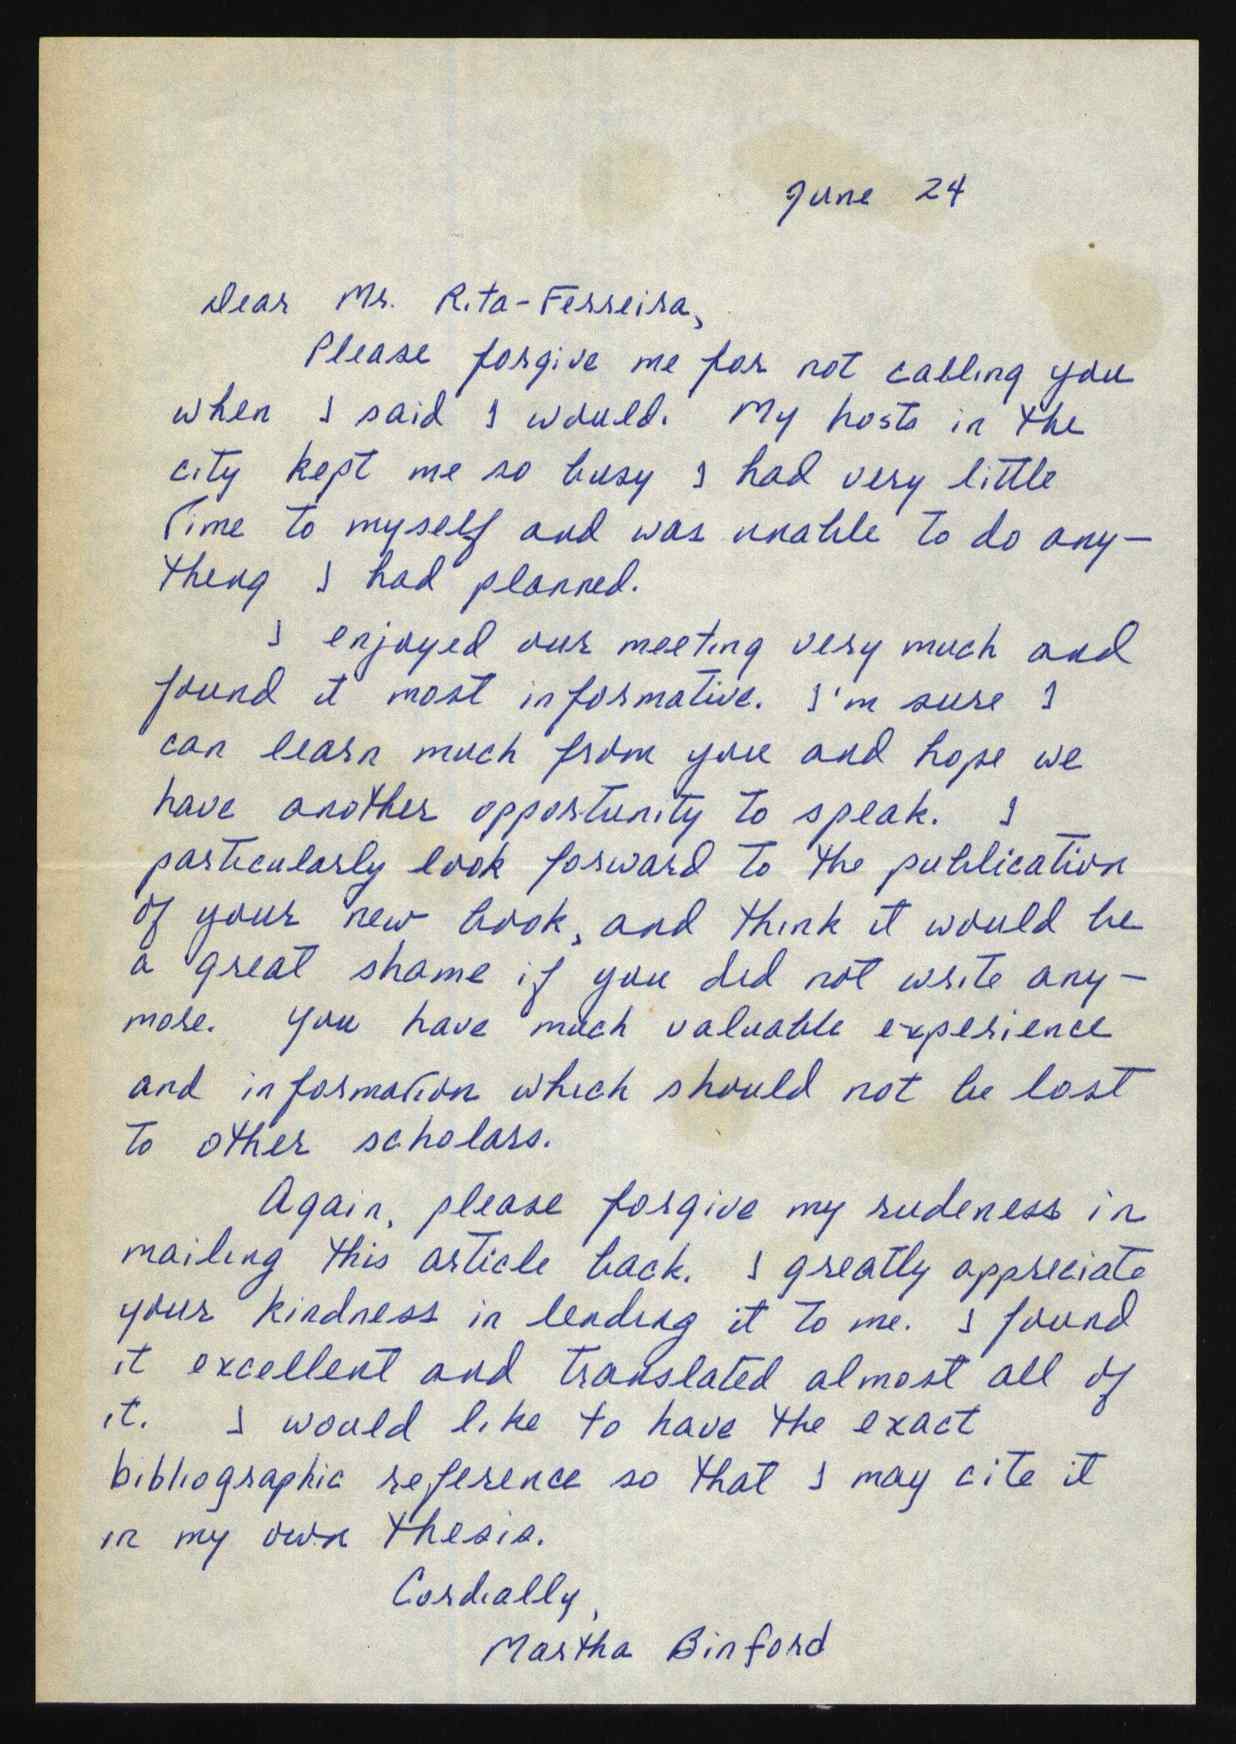 June 24
Dear Mr. Rita-Ferreira,
Please forgive me for not calling you
when I said I would. My hosts in the
city kept me so busy I had very little
time to myself and was unable to do any-
thing I had planned.
I enjoyed our meeting very much and
found it most informative. I'm sure I
can learn much from you and hope we
have another opportunity to speak. I
particularly look forward to the publication
of your new book, and think it would be
a great shame if you did not write any-
more. You have much valuable experience
and information which should not be lost
to other scholars.
Again, please forgive my rudeness in
mailing this article back. I greatly appreciate
your kindness in lending it to me. I found
it excellent and translated almost all of
it. I would like to have the exact
bibliographic reference so that I may cite it
in my own thesis.
Cordially,
Martha Binford